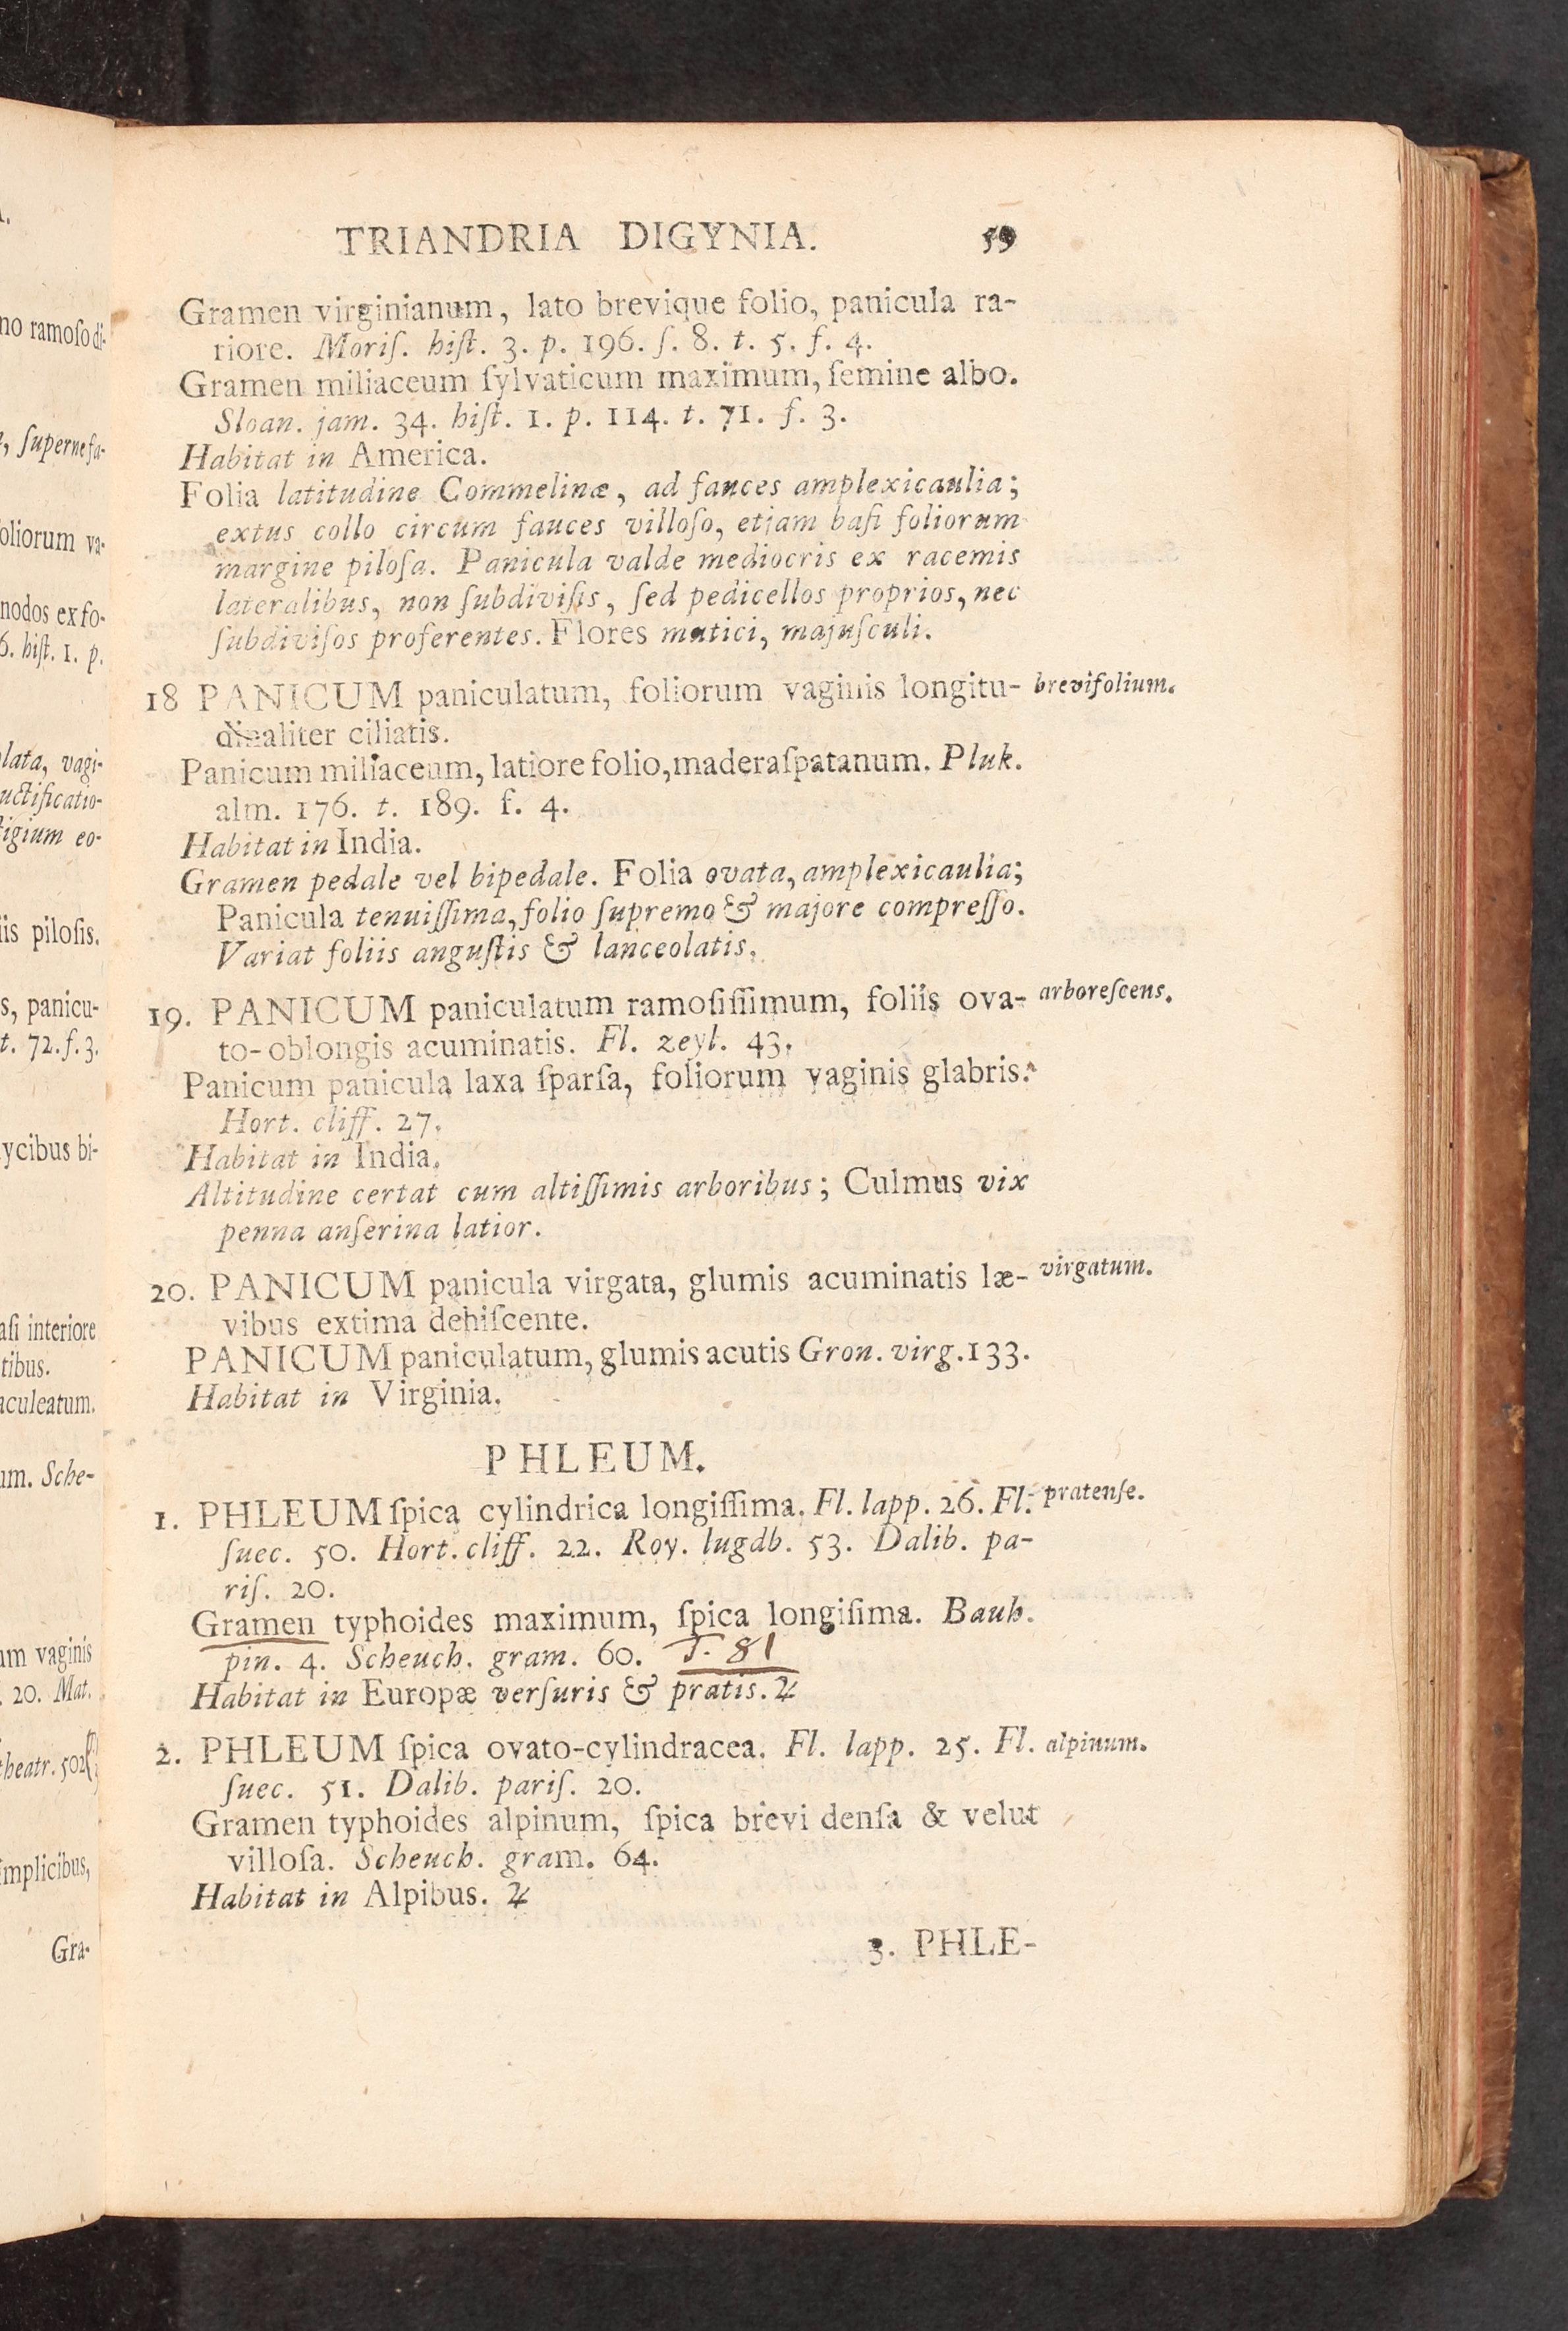 TRIANDRIA DIGYNIA. 59
Gramen virginianum, lato brevique folio, panicula ra-
riore. Moriſ. hiſt. 3. p. 196. ſ. 8. t. 5. f. 4.
Gramen miliaceum ſylvaticum maximum, ſemine albo.
Sloan. jam. 34. hiſt. 1. p. 114. t. 71. f. 3.
Habitat in America.
Folia latitudine Commelinæ, ad fances amplexicaulia;
extus collo circum fauces villoſo, etiam baſi foliorum
margine piloſa. Panicula valde mediocris ex racemis
lateralibus, non ſubdiviſis, ſed pedicellos proprios, nec
ſubdiviſos proferentes. Flores mutici, majuſculi.
18 PANICUM paniculatum, foliorum vaginis longitu- brevifolium.
dinaliter ciliatis.
Panicum miliaceum, latiore folio, maderaſpatanum. Pluk.
alm. 176. t. 189. f. 4.
Habitat in India.
Gramen pedale vel bipedale. Folia ovata, amplexicaulia;
Panicula tenuiſſima, folio ſupremo & majore compreſſo.
Variat foliis anguſtis & lanceolatis.
19. PANICUM paniculatum ramoſiſſimum, foliis ova- arboreſcens.
to-oblongis acuminatis. Fl. zeyl. 43.
Panicum panicula laxa ſparſa, foliorum vaginis glabris.
Hort. cliff. 27.
Habitat in India.
Altitudine certat cum altiſſimis arboribus; Culmus vix
penna anſerina latior.
20. PANICUM panicula virgata, glumis acuminatis læ- virgatum.
vibus extima dehiſcente.
PANICUM paniculatum, glumis acutis Gron. virg. 133.
Habitat in Virginia.
PHLEUM.
1. PHLEUM ſpica cylindrica longiſſima. Fl. lapp. 26. Fl. pratenſe.
ſuec. 50. Hort. cliff. 22. Roy. lugdb. 53. Dalib. pa-
riſ. 20.
Gramen typhoides maximum, ſpica longiſima. Bauh.
pin. 4. Scheuch. gram. 60. T. 81
Habitat in Europæ verſuris & pratis. ♃
2. PHLEUM ſpica ovato-cylindracea. Fl. lapp. 25. Fl. alpinum.
ſuec. 51. Dalib. pariſ. 20.
Gramen typhoides alpinum, ſpica brevi denſa & velut
villoſa. Scheuch. gram. 64.
Habitat in Alpibus. ♃
3. PHLE-